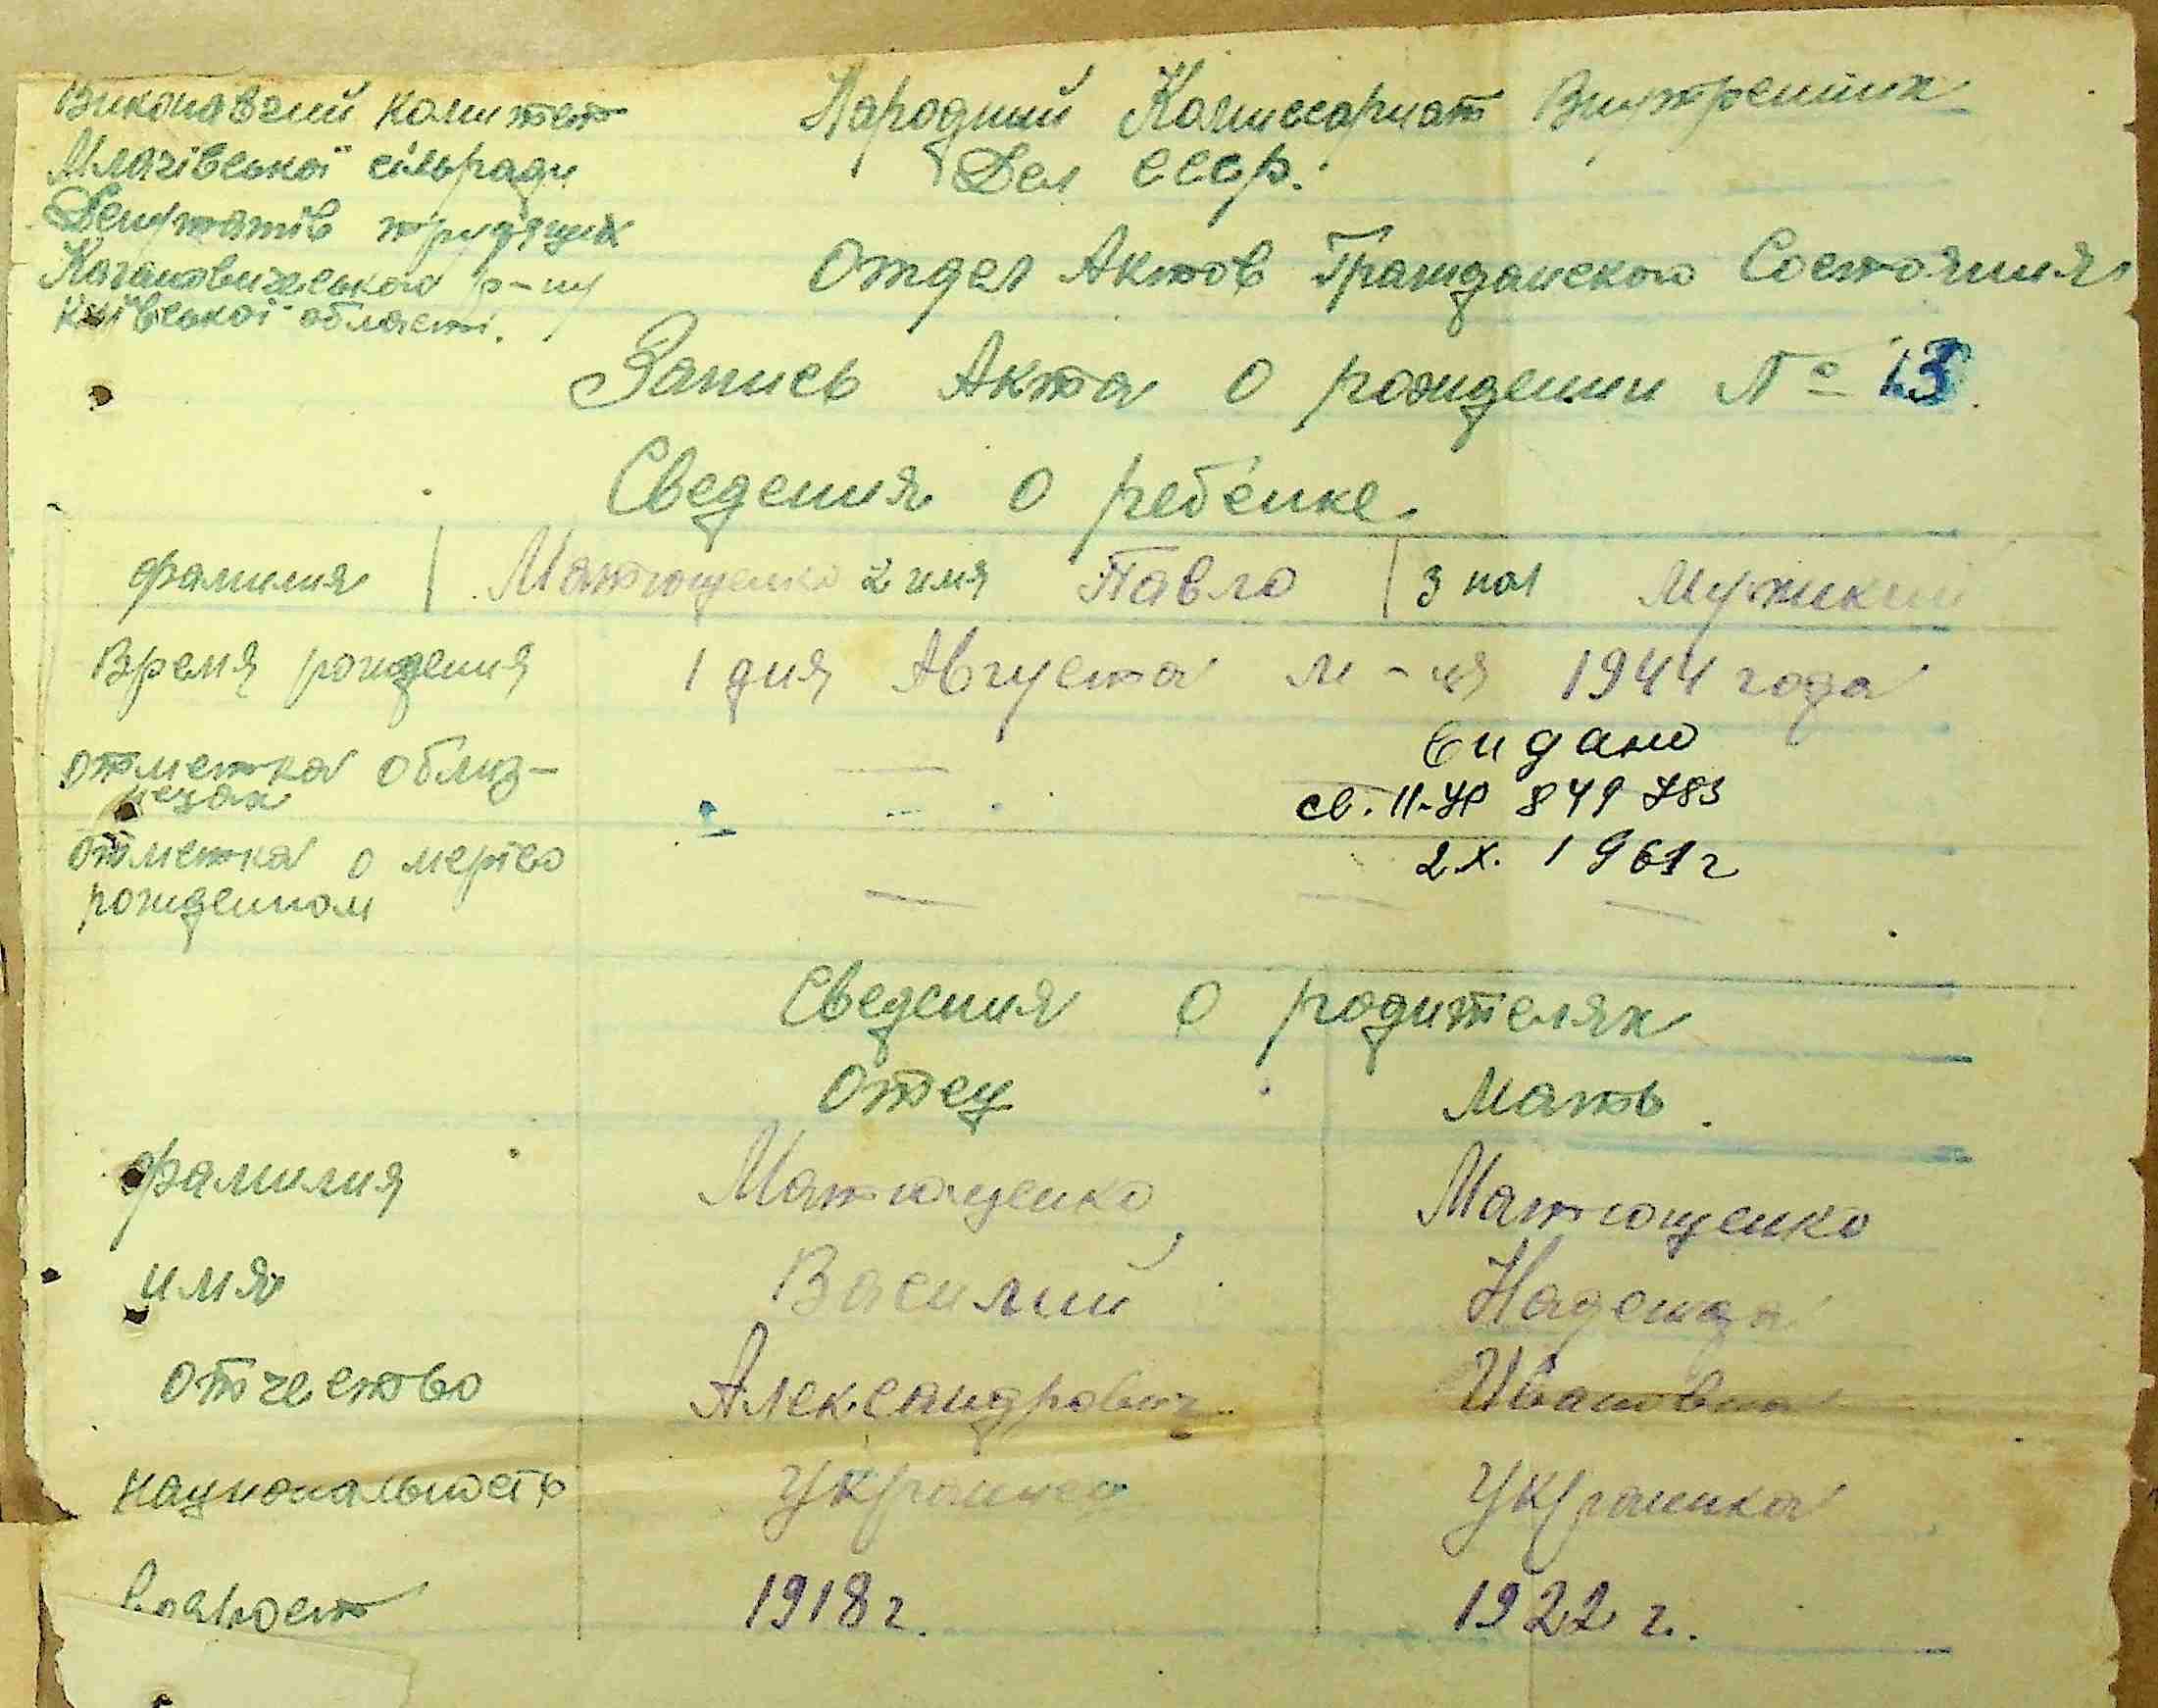 Виконавчий комитет
Млачівської сільради
Депутатів трудящих
Кагановичського р-ну
Київської області.
Народный Комиссариат Внутренних
Дел СССР.
Отдел Актов Гражданского Состояния
Запись Акта о рождении № 13
Сведения о ребёнке.
фамилия | Матющенко 2 имя Павло | 3 пол Мужский
Время рождения 1 дня Августа м-ця 1944 года
отметка о близ-
нецах
видано
св. II-УР 849783
2.X. 1961 г
отметка о мертво
рожденном
Сведения о родителях
Отец Мать.
фамилия Матющенко Матющенко
имя Василий Надежда
отчество Александрович Ивановна
национальность Украинец Украинка
возраст 1918 г. 1922 г.